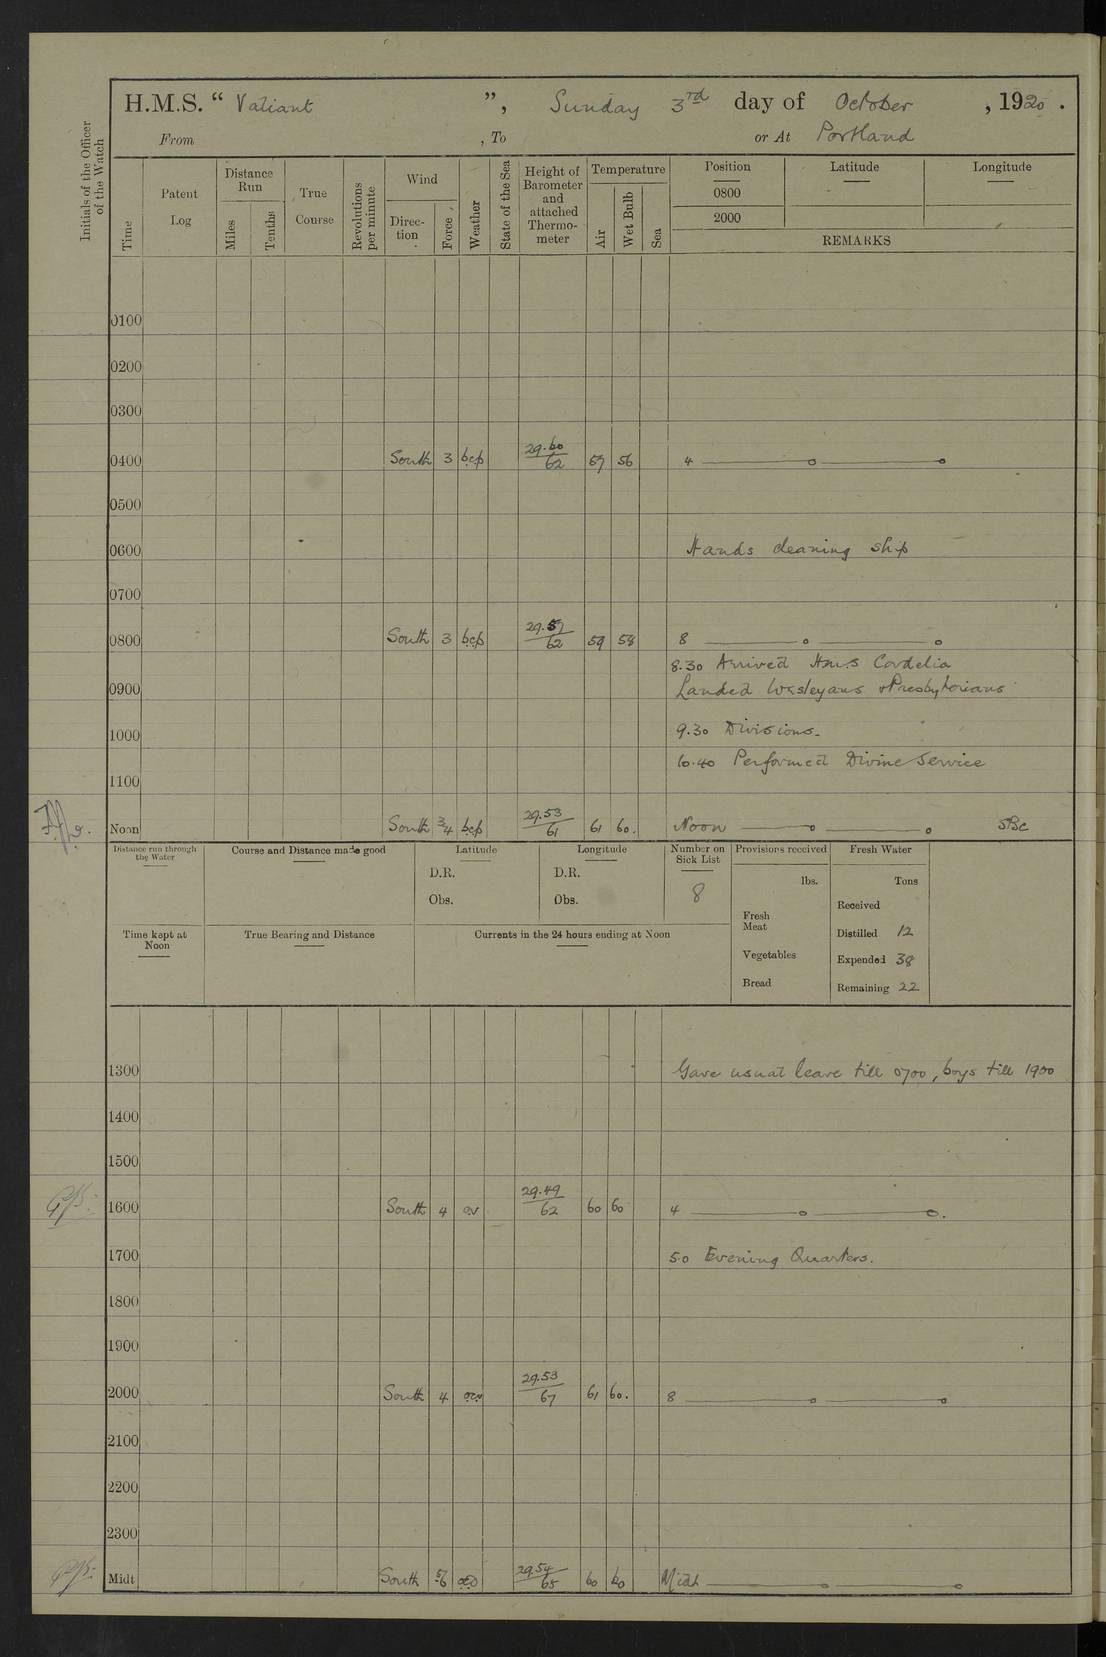 H.M.S. “ Valiant ”, Sunday 3rd day of October , 1920 .
From , To or At Portland
Initials of the Officer of the Watch
Time
Patent Log
Distance Run
Miles
Tenths
True Course
Revolutions per minute
Wind
Direc-tion
Force
Weather
State of the Sea
Height of Barometer and attached Thermo-meter
Temperature
Air
Wet Bulb
Sea
Position Latitude Longitude
0800
2000
REMARKS
0100
0200
0300
0400 South 3 bcp 29.60/62 57 56 4
0500
0600 Hands cleaning ship
0700
0800 South 3 bcp 29.57/62 59 58 8
8.30 Arrived H.M.S Cordelia
0900 Landed Wesleyans & Presbyterians
1000 9.30 Divisions.
10.40 Performed Divine Service
1100
Noon South 3/4 bcp 29.53/61 61 60. Noon
Distance run through the Water
Course and Distance made good
Latitude
D.R.
Obs.
Longitude
D.R.
Obs.
Number on Sick List
8
Provisions received
lbs.
Fresh Meat
Vegetables
Bread
Fresh Water
Tons
Received
Distilled 12
Expended 38
Remaining 22
Time kept at Noon
True Bearing and Distance
Currents in the 24 hours ending at Noon
1300 Gave usual leave till 0700, boys till 1900
1400
1500
1600 South 4 29.49/62 60 60 4
1700 5.0 Evening Quarters.
1800
1900
2000 South 4 29.53/67 61 60. 8
2100
2200
2300
Midt South 5/6 29.54/65 60 60 Midt